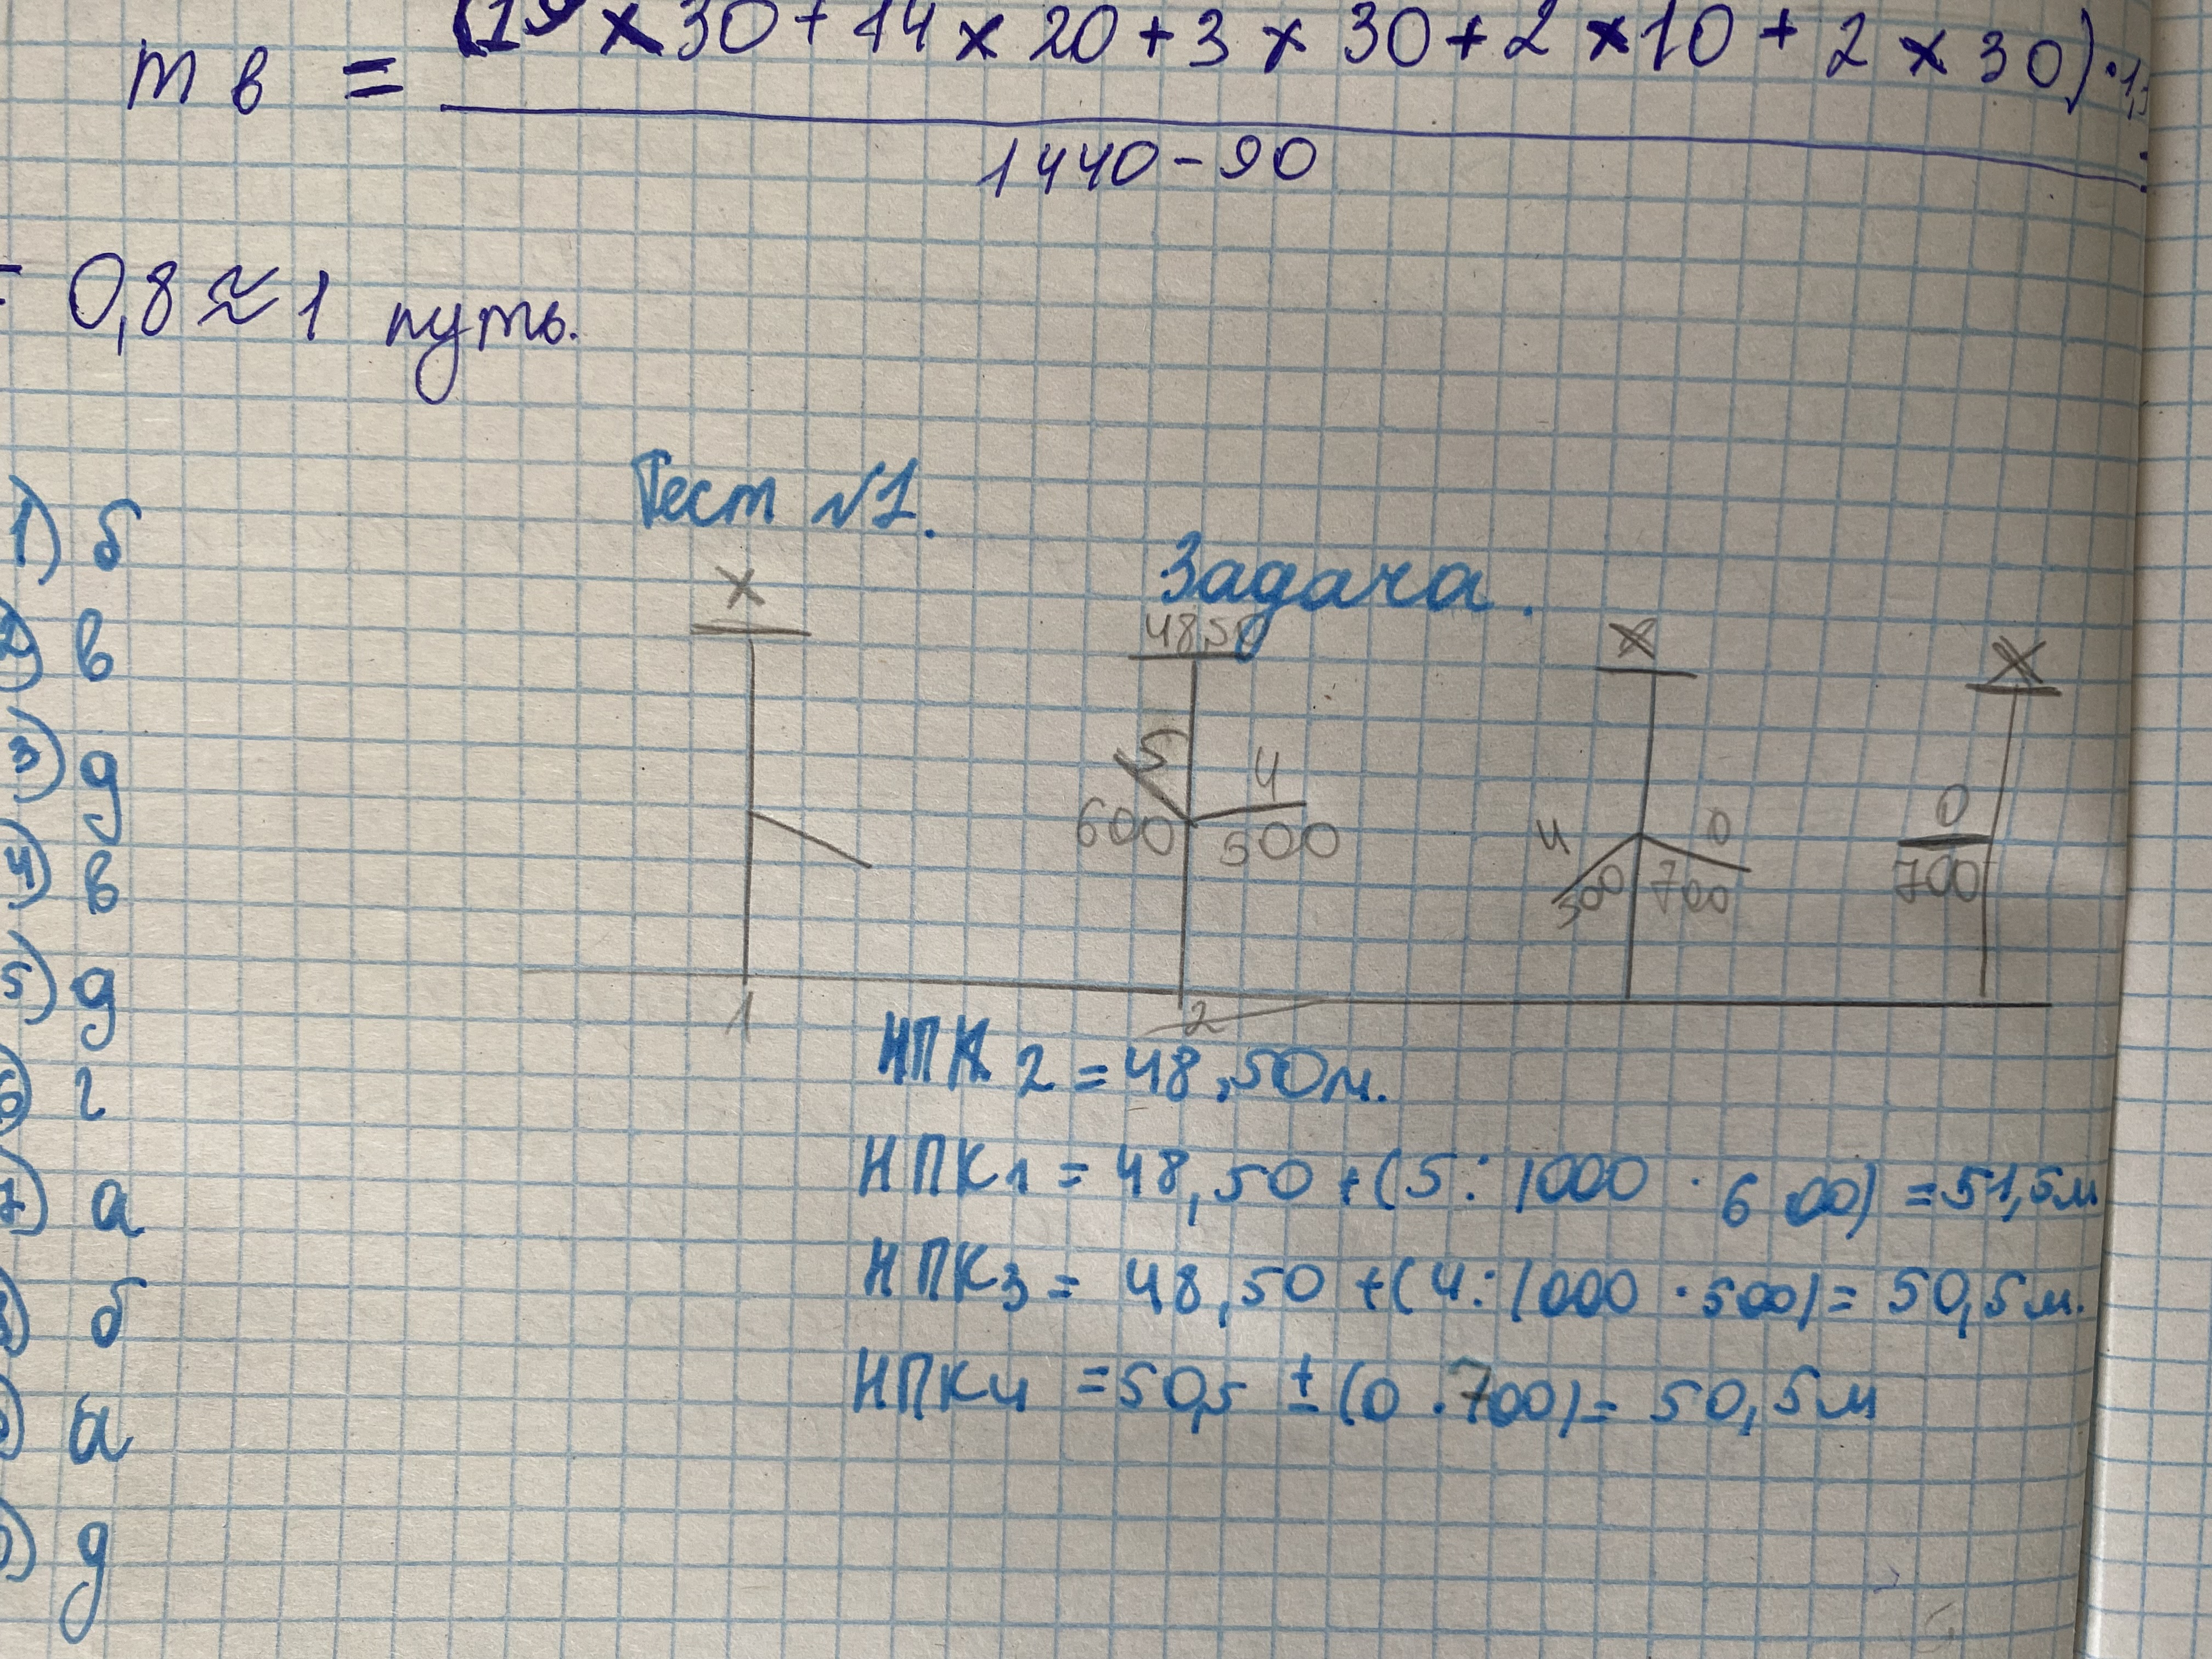 × 30 + 14 × 20 + 3 × 30 + 2 × 10 + 2 × 30)
m в =
1440 - 90
= 0,8 ≈ 1 путь.
Тест №1.
Задача.
1) б
2) в
3) д
4) в
5) д
6) г
7) а
8) б
а
д
X
48,50
X
X
5
4
600
500
4
0
500
700
0
700
1
2
НПК2 = 48,50м.
НПК1 = 48,50 + (5:1000 · 600) = 51,5м
НПК3 = 48,50 + (4:1000 · 500) = 50,5м.
НПК4 = 50,5 ± (0 · 700) = 50,5м